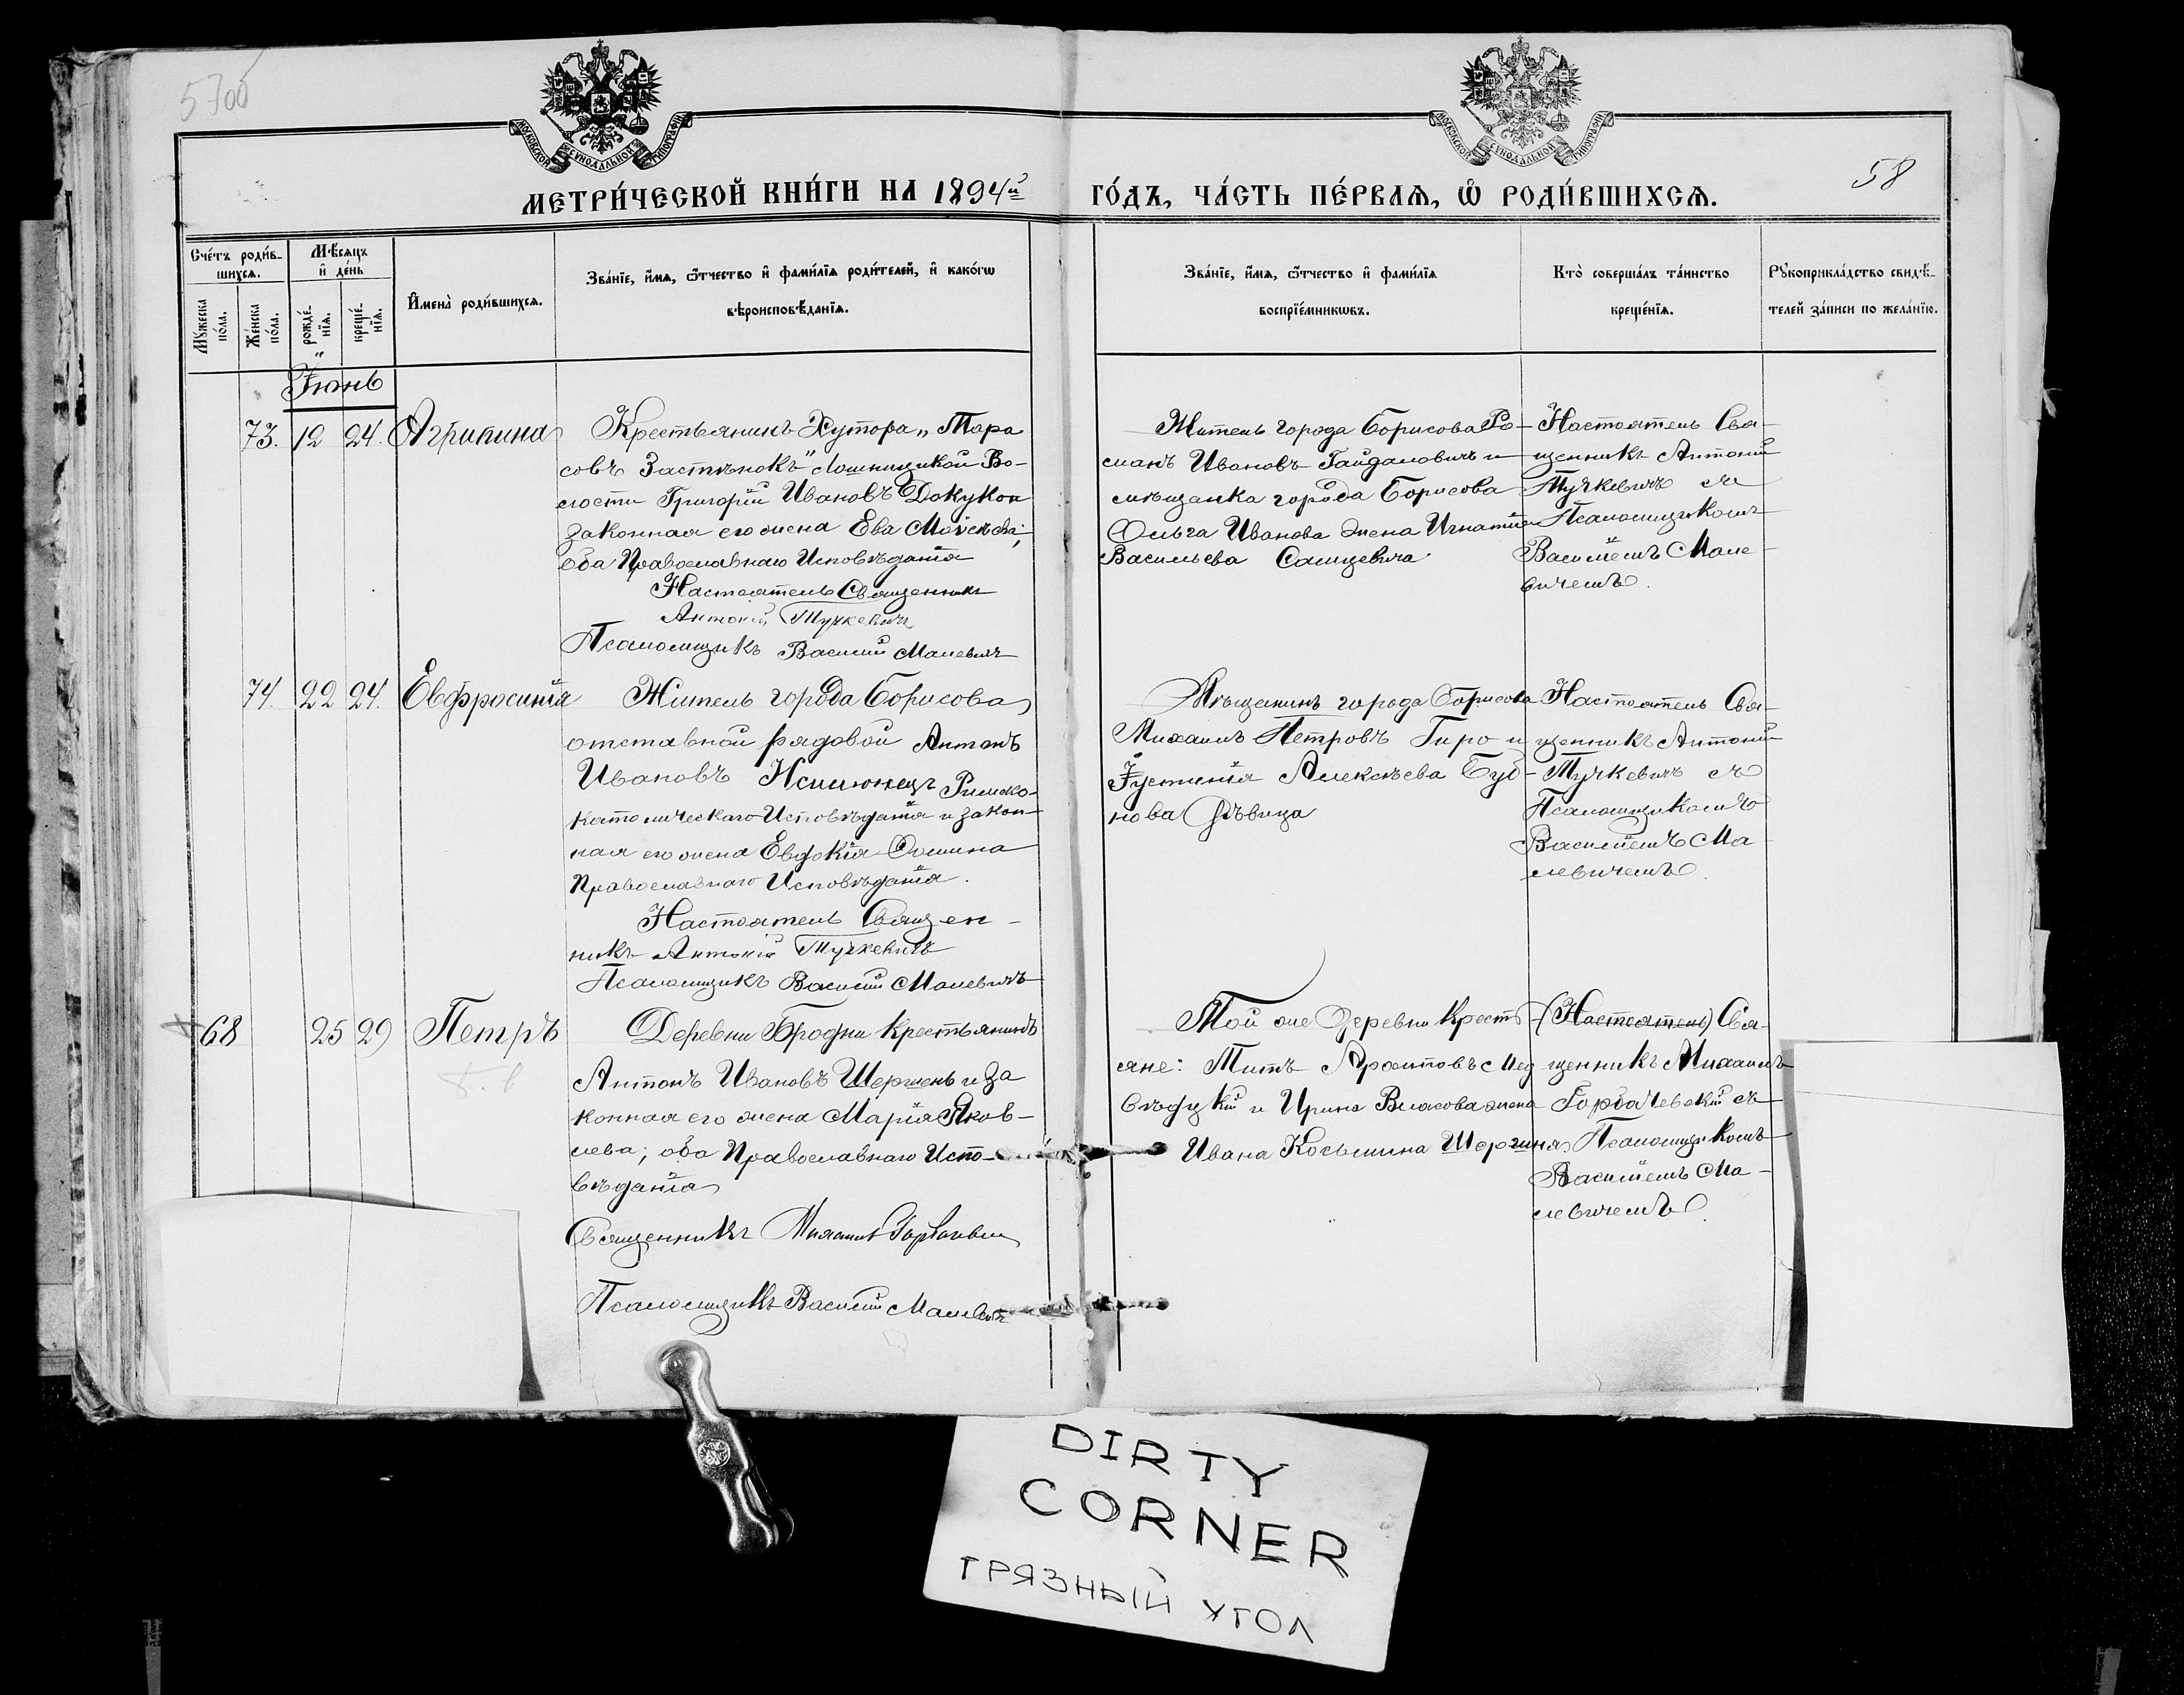 57об
МОСКОВСКОЙ СѴНОДАЛЬНОЙ ТИПОГРАФІИ
МОСКОВСКОЙ СѴНОДАЛЬНОЙ ТИПОГРАФІИ
58
МЕТРИ́ЧЕСКОЙ КНИ́ГИ НА 1894й
ГО́ДЪ, ЧА́СТЬ ПЕ́РВАѦ, Ѡ҆ РОДИ́ВШИХСѦ.
Сче́тъ роди́в-
шихсѧ.
Мѣ́сѧцъ
и҆ де́нь
И҆мена̀ роди́вшихсѧ.
Зва́нїе, и҆́мѧ, ѻ҆́тчество и҆ фами́лїѧ роди́телей, и҆ како́гѡ
вѣроисповѣ́данїѧ.
Мꙋ́жеска
по́ла.
Же́нска
по́ла.
рожде́-
нїѧ.
креще́-
нїѧ.
Зва́нїе, и҆́мѧ, ѻ҆́тчество и҆ фами́лїѧ
воспрїе́мникѡвъ.
Кто̀ соверша́лъ та́инство
креще́нїѧ.
Рꙋкоприкла́дство свидѣ́-
телей за́писи по жела́нїю.
Іюнь
73. 12 24. Агрипина
Крестьянинъ Хутора „Тара
совъ Застѣнокъ" Лошницкой Во-
лости Григорій Ивановъ Докукон
законная его жена Ева Моѵсѣева;
оба Православнаго Исповѣданія
Настоятель Священникъ
Антоній Тучкевичъ
Псаломщикъ Василій Малевичъ
Житель города Борисова Ро-
манъ Ивановъ Гайдаловичъ и
мѣщанка города Борисова
Ольга Иванова жена Игнатія
Васильева Сальцевича
Настоятель Свя-
щенникъ Антоній
Тучкевичъ съ
Псаломщикомъ
Василіемъ Мале-
вичемъ.
74. 22 24. Евфросинія
Житель города Борисова,
отставной рядовой Антонъ
Ивановъ Римско-
католическаго Исповѣданія и закон-
ная его жена Евдокія Фомина
Православнаго Исповѣданія.
Настоятель Священ-
никъ Антоній Тучкевичъ
Псаломщикъ Василій Малевичъ
Мѣщанинъ города Борисова
Михаилъ Петровъ Гиро и
Іустинія Алексѣева Буб-
нова дѣвица
Настоятель Свя-
щенникъ Антоній
Тучкевичъ съ
Псаломщикомъ
Василіемъ Ма-
левичемъ.
68 25 29 Петръ
Деревни Бродни крестьянинъ
Антонъ Ивановъ Шершень и за
конная его жена Марія Яков-
лева; оба Православнаго Испо-
вѣданія
Священникъ Михаилъ Горбачевскій
Псаломщикъ Василій Малевичъ
Той же Деревни Кресть-
яне: Титъ Мед
вѣдцкій и Ирина Власова жена
Ивана Косьмина Шершня
(Настоятель) Свя-
щенникъ Михаилъ
Горбачевскій съ
Псаломщикомъ
Василіемъ Ма-
левичемъ.
DIRTY
CORNER
ГРЯЗНЫЙ УГОЛ